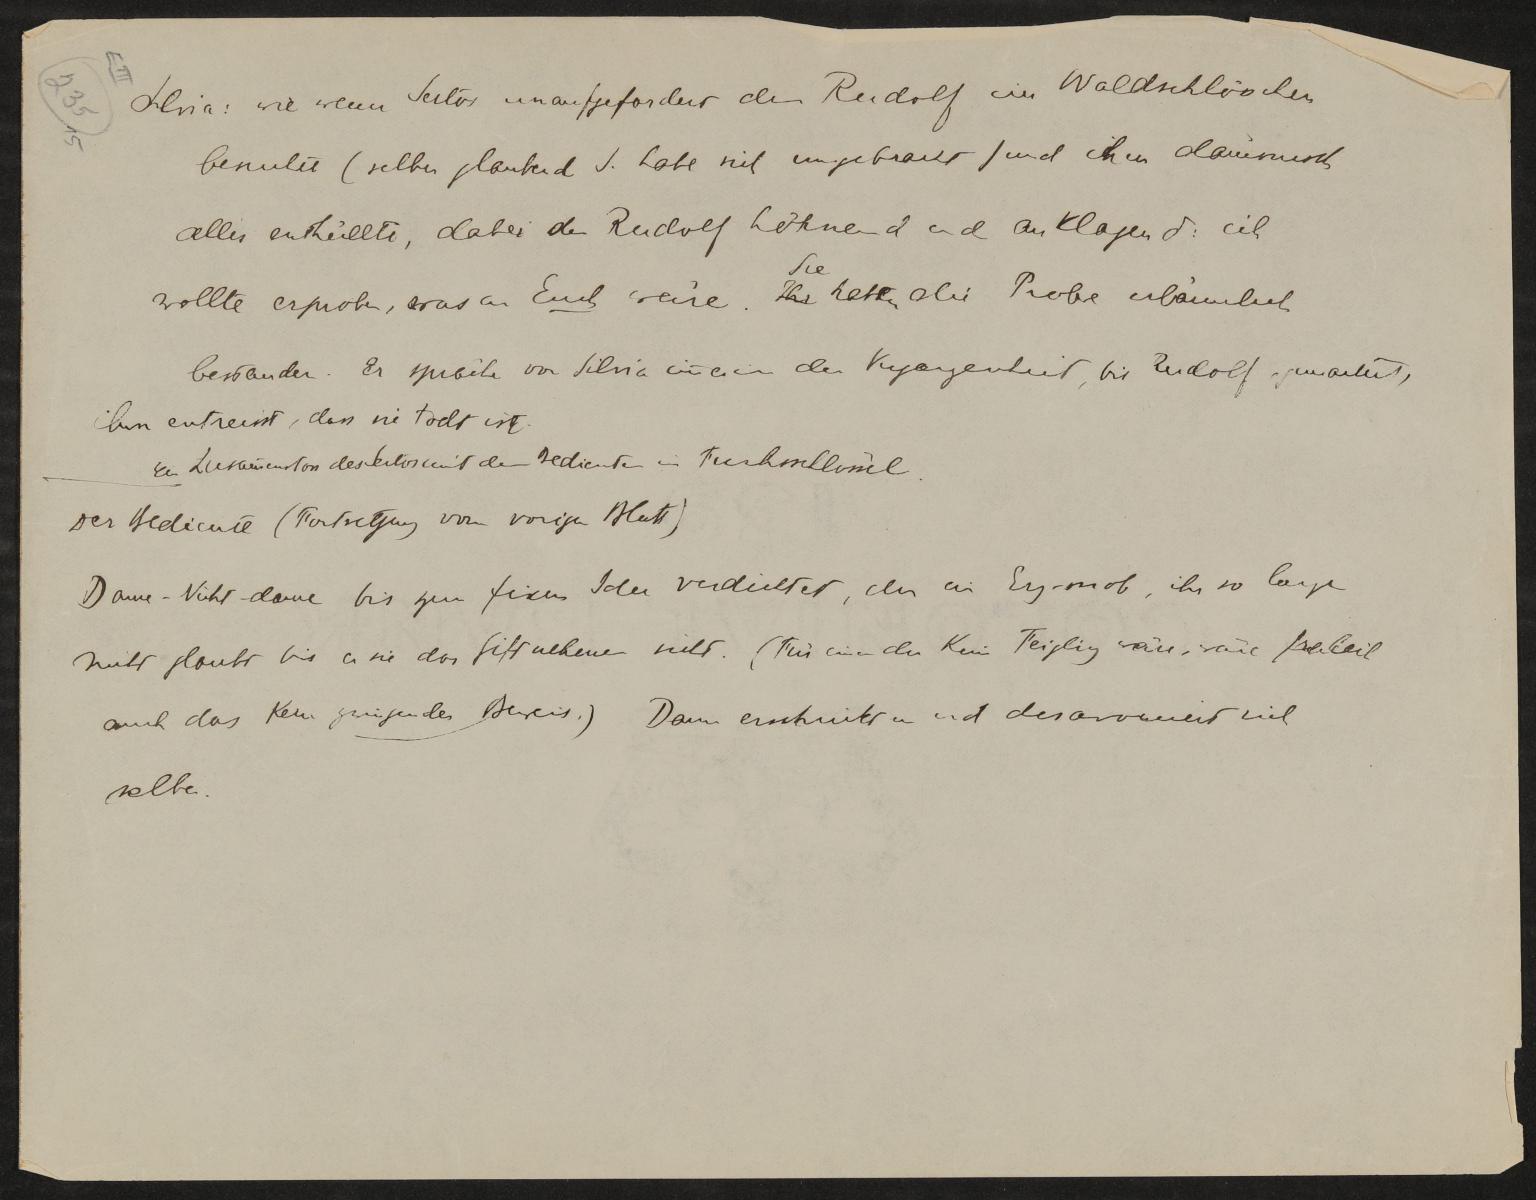 E III
235
15
Silvia: wie wenn Sertos unaufgefordert den Rudolf im Waldschlösschen
besuchte (selber glaubend S. habe sich umgebracht) und ihm dämonisch
alles enthüllte, dabei den Rudolf höhnend und anklagend: ich
wollte erproben, was an Euch wäre. Sie hätten die Probe erbärmlich
bestanden. Er spräche von Silvia immer in der Vergangenheit, bis Rudolf gemartert,
ihm entreisst, dass sie todt ist.
Zusammenstoss des Sertos mit dem Bedienten im Fuchsschlössel.
Der Bediente (Fortsetzung vom vorigen Blatt)
Dame-Nicht-dame bis zur fixen Idee verdichtet, der ein Erz-snob, ihr so lange
nicht glaubt bis er sie das Gift nehmen sieht. (Für einen der kein Feigling wäre, wäre freilich
auch das kein zwingender Beweis.) Dann erschrickt er und desavouiert sich
selber.